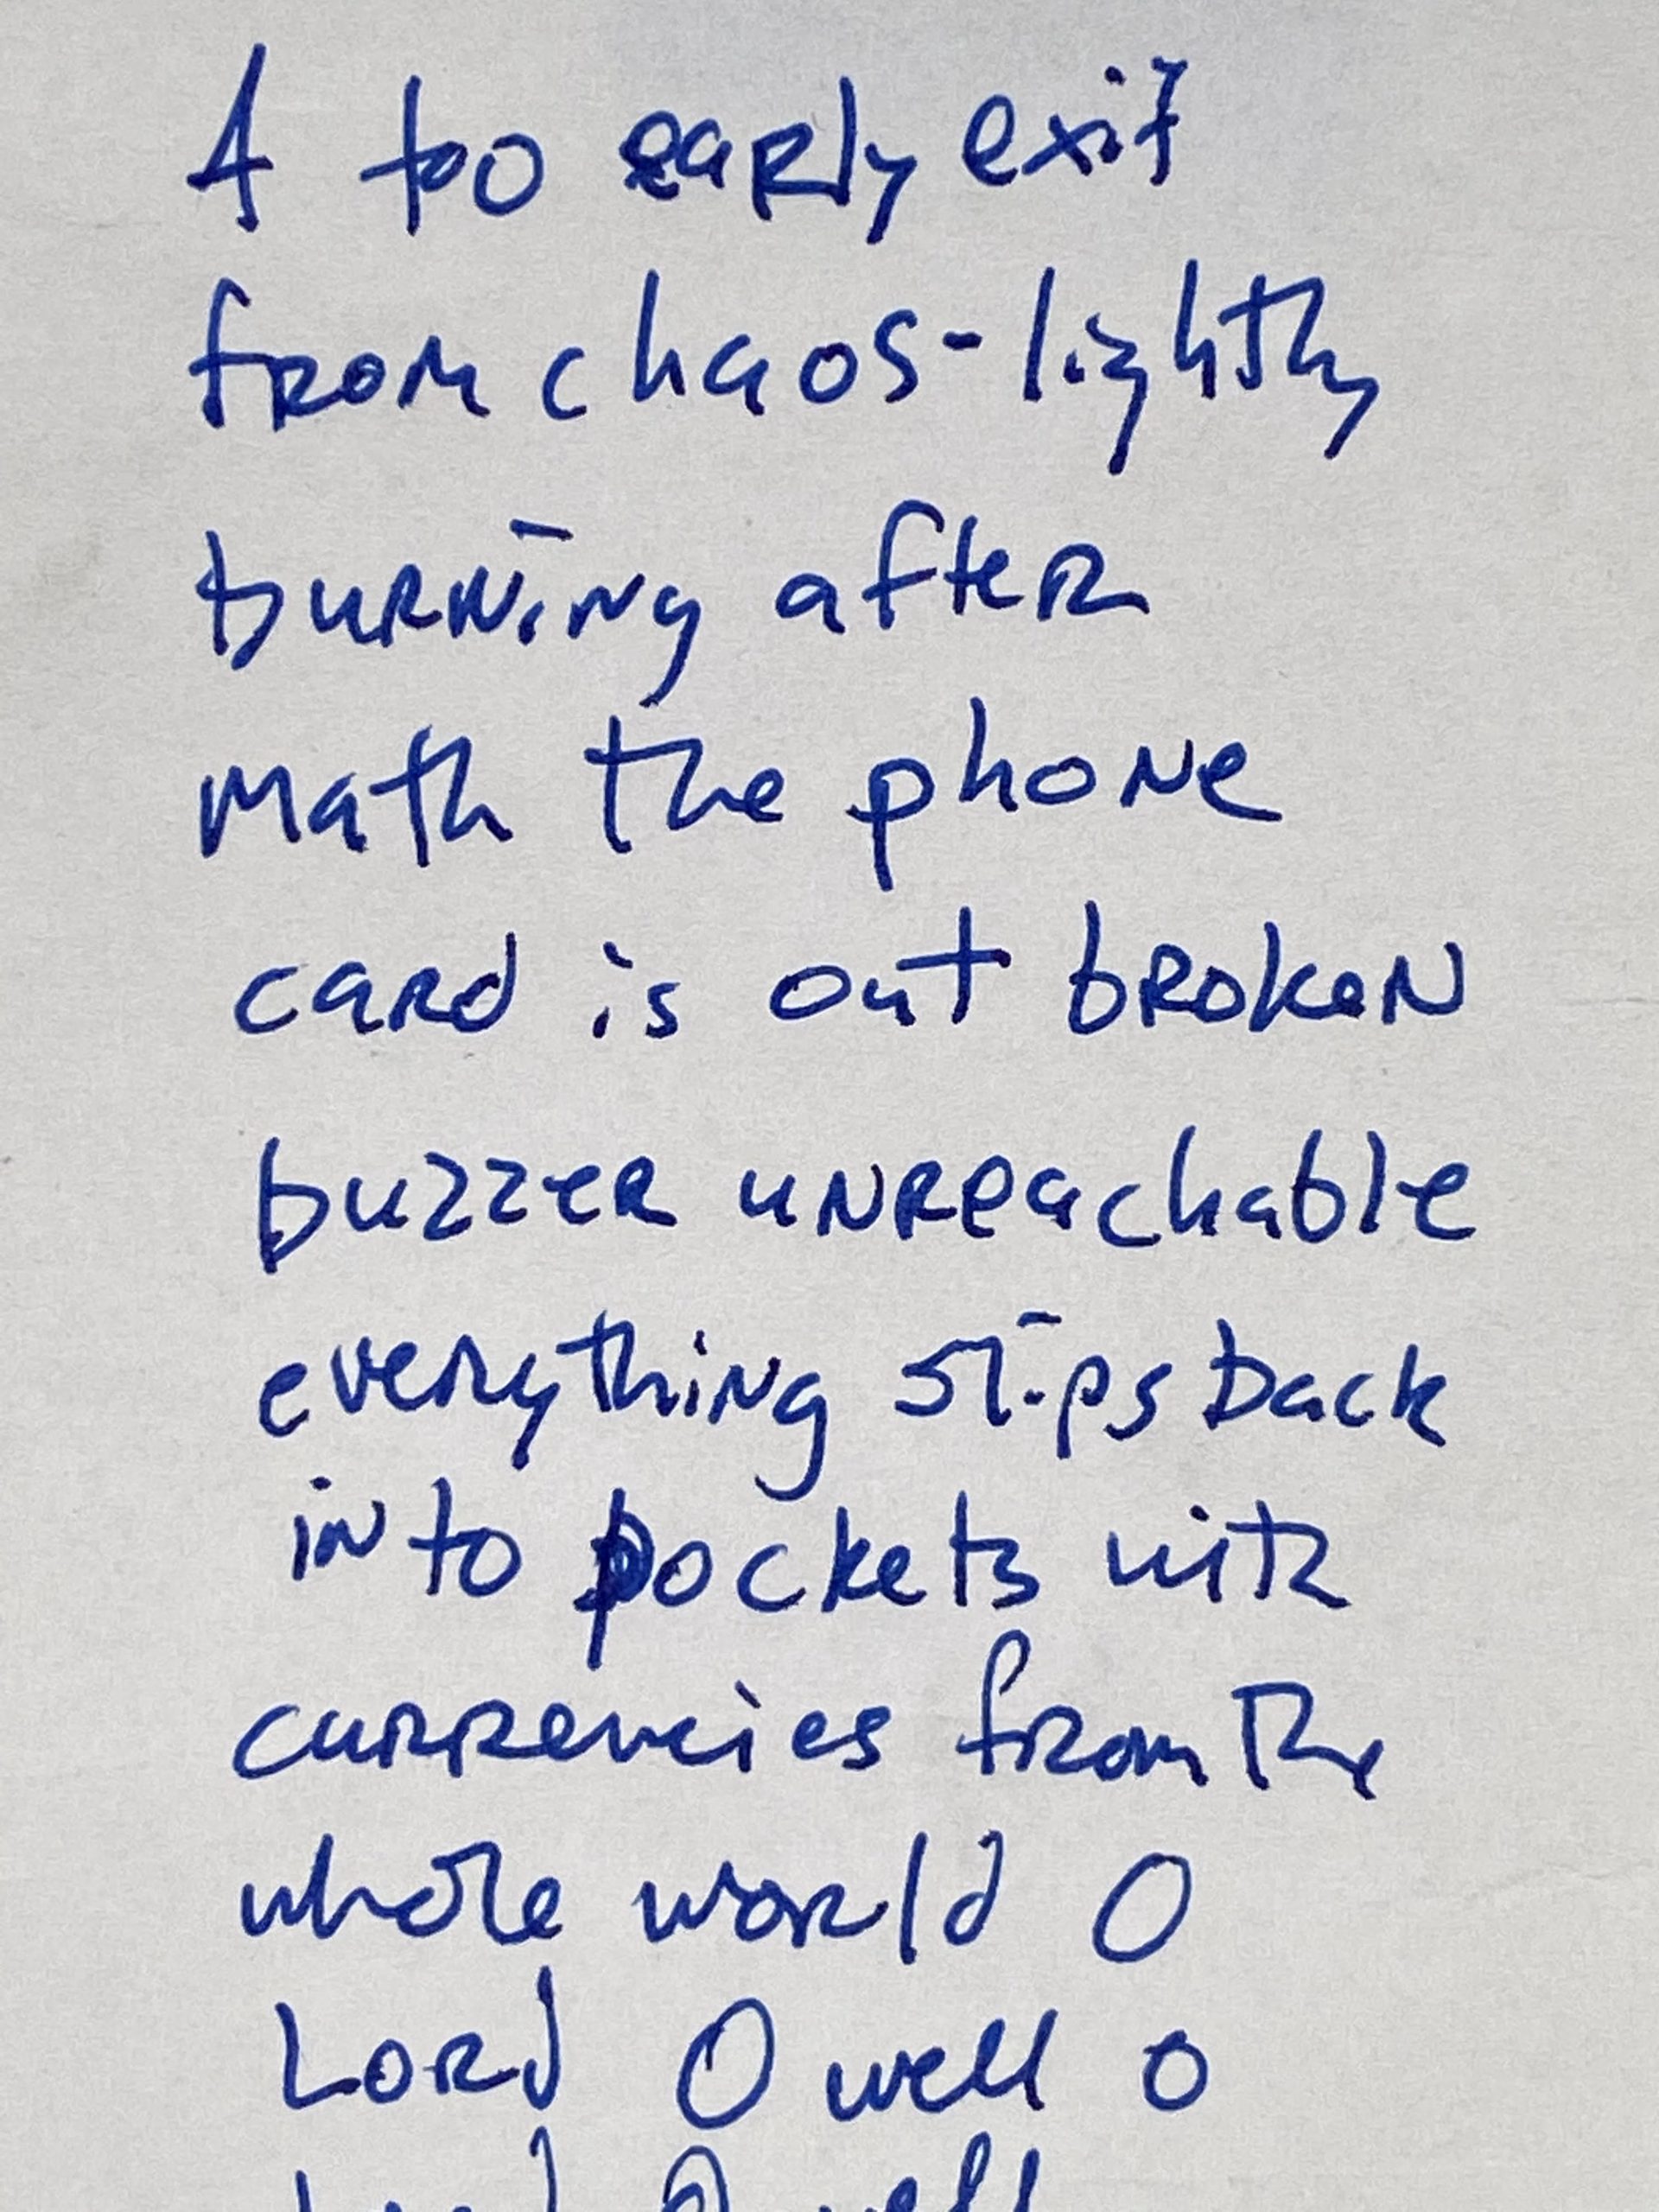 A too early exit
from chaos-lightly
burning after
math the phone
card is out broken
buzzer unreachable
everything slips back
into pockets with
currencies from the
whole world O
Lord O well o
Lord O well